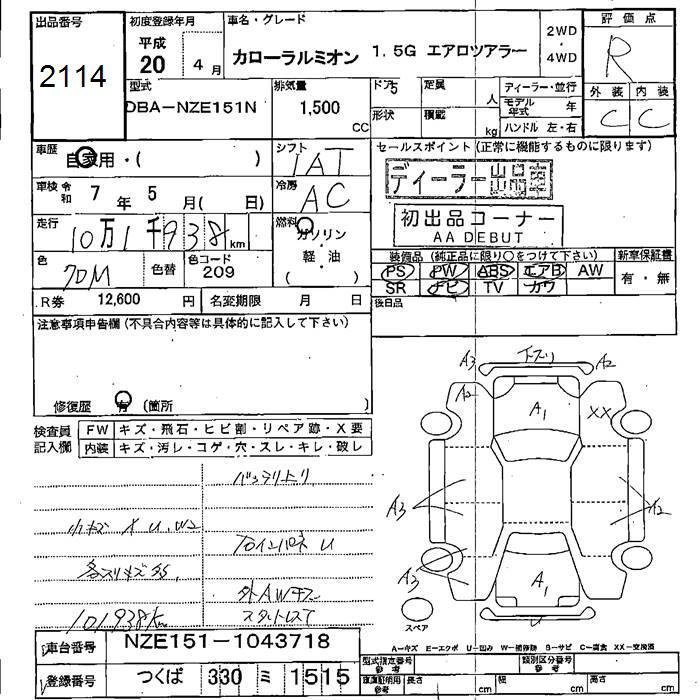 出品番号
2114
初度登録年月
平成
20 4月
車名・グレード
カローラルミオン 1.5G エアロツアラー
2WD
・
4WD
評価点
R
外装 内装
C C
型式
DBA-NZE151N
排気量
1,500
CC
ドア 5
形状
定員
人
積載
kg
ディーラー・並行
モデル年式 年
ハンドル 左・右
車歴
自家用・( )
シフト
IAT
車検 令和 7年 5月( 日)
冷房
AC
走行
10万1千938km
燃料
ガソリン
・
軽・油
( )
色
色替
色コード
209
R券 12,600 円
名変期限 月 日
セールスポイント(正常に機能するものに限ります)
ディーラー出品車
初出品コーナー
AA DEBUT
装備品(純正品に限り○をつけて下さい)
新車保証書
PS PW ABS エアB AW
SR ナビ TV カワ
有・無
後日品
注意事項申告欄(不具合内容等は具体的に記入して下さい)
修復歴 有 (箇所 )
検査員
記入欄
FW キズ・飛石・ヒビ割・リペア跡・X要
内装 キズ・汚レ・コゲ・穴・スレ・キレ・破レ
バッテリ上り
小キズ
U.W2
各スリキズ
インパネ
外AWキズ
スタットレス
101938km
A3
A2
A2
A1
XX
A3
A2
A3
A1
U
スペア
A-キズ E-エクボ U-凹み W-補修跡 S-サビ C-腐食 XX-交換済
車台番号 NZE151-1043718
登録番号 つくば 330 ミ 1515
型式指定番号
参考
類別区分番号
参考
車庫証明用
参考
長さ cm
幅 cm
高さ cm